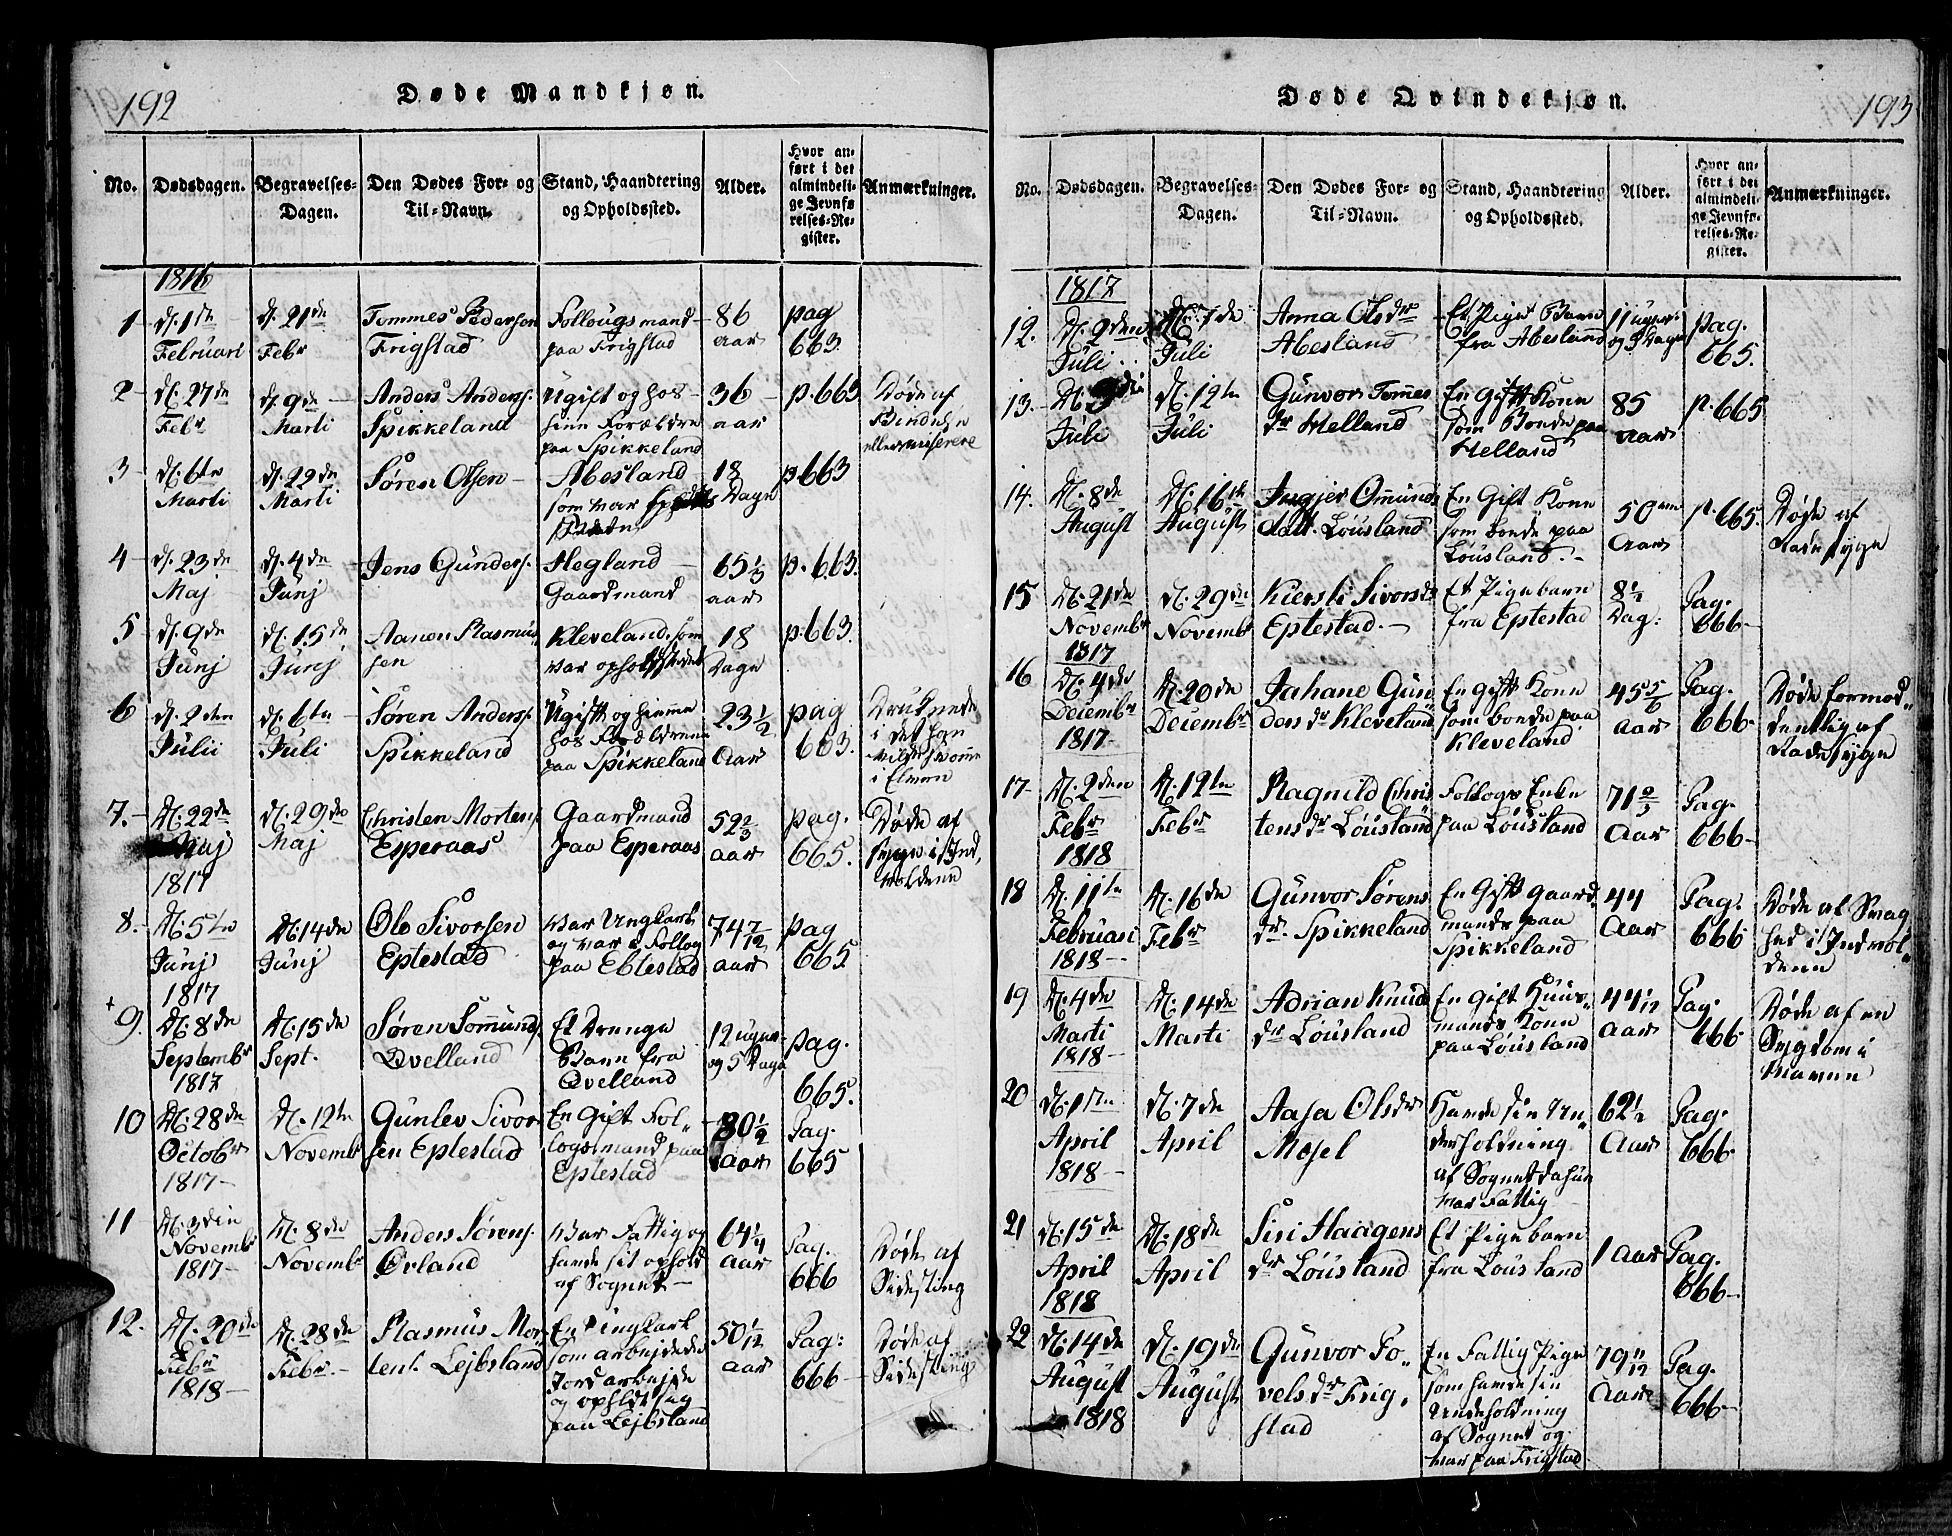 192
Døde Mandkjøn.
No.
Dødsdagen.
Begravelses-
Dagen.
Den Dødes For- og
Til-Navn.
Stand, Haandtering
og Opholdssted.
Alder.
Hvor an-
ført i det
almindeli-
ge Jevnfø-
relses-Re-
gister.
Anmærkninger.
1816
1
D. 1de
Februari
D. 21de
Febr
Tommes Pederson
Frigstad
Follougsmand
paa Frigstad
86
aar
pag
663.
2
D. 27de
Febr
D. 9de
Marti
Anders Anders.
Spikkeland
Ugift og hos
sine Forældre
paa Spikkeland
36
aar
p. 663
Døde af
3
D. 6te
Marti
D. 22de
Marti
Søren Olsen
Abesland
som var
18
Dage
p. 663
4
D. 23de
Maj
D. 4de
Junj
Jens Gunders.
Hegland
Gaardmand
65 1/3
aar
p. 663.
5
D. 9de
Junj
D. 15de
Junj
Aanon Rasmus-
sen
Kleveland, som
var opholdstedet
18
Dage
p. 663.
6
D. 2den
Julii
D. 6te
Juli
Søren Anders.
Spikkeland
Ugift og hjemme
hos Forældrene
paa Spikkeland
23 1/2
Aar
pag
663.
Druknede
7.
D. 22de
Maj
1817
D. 29de
Maj
Christen Mortens.
Esperaas
Gaardmand
paa Esperaas
52 2/3
aar
pag.
665.
Døde af
Syge i Ind,
voldene
8.
D. 5te
Junj
1817
D. 14de
Junj
Ole Sivorsen
Eptestad
var Ungkarl
og var i Follog
paa Eblestad
74 7/12
aar
pag
665
+ 9.
D. 8de
Septembr
1817
D. 15de
Sept.
Søren Sommund.
Qvelland
Et Drenge
Barn fra
Qvelland
12 uger
og 5 Dage
pag.
665.
10
D. 28de
Octobr
1817
D. 12te
Novembr
Gunlev Sivor
sen Eptestad
En Gift Fol-
logsmand paa
Eptestad
80 1/2
Aar
Pag.
665
11
D. 3din
Novembr
1817
D. 8de
Novembr
Anders Sørens.
Øvland
Var Fattig og
havde sit ophold
af Sognet
64 1/4
aar
Pag.
666
Døde af
Sidesting
12.
D. 20de
Febr
1818
D. 28de
Febr.
Rasmus Mor-
tens. Lejbsland
En Ungkarl
som arbejdede
Jordarbejde
og opholdt sig
paa Lejbsland
50 1/12
aar
Pag:
666
Døde af
Sidesting
Døde Qvindekjøn.
193
No.
Dødsdagen.
Begravelses-
Dagen.
Den Dødes For- og
Til-Navn.
Stand, Haandtering
og Opholdssted.
Alder.
Hvor an-
ført i det
almindeli-
ge Jevnfø-
relses-Re-
gister.
Anmærkninger.
1817
12.
D. 2den
Juli
D. 7de
Juli
Anna Olsdr
Abesland
Et Pige Barn
fra Abesland
11 uger
og 3 Dage
pag.
665.
13.
Juli
D. 12te
Juli
Gunvor Tommes
dr Helland
En Gift Kone
som Boede paa
Helland
85
aar
p. 665
14.
D. 8de
August
D. 16de
August
Ingjer Ommunds
datt. Løusland
En Gift Kone
som boede paa
Løusland.
50
Aar
p. 665.
Døde af
Radesyge
15
D. 21de
Novembr
1817
D. 29de
Novembr
Kiersti Sivorsdr
Eptestad.
Et Pigebarn
fra Eptestad
8 1/2
Dag:
Pag.
666
16
D. 4de
Decembr
1817
D. 20de
Decembr
Jahane Gun,
ders dr Kleveland
En gift Kone
som boede paa
Kleveland
45 5/6
aar
Pag.
666
Døde formod,
dentlig af
Radesyge
17
D. 2den
Febr
1818
D. 12te
Febr
Ragnild Chris
tens dr Løusland
Follogs Enke
paa Løusland
71 2/3
Aar
Pag.
666
18
D. 11te
Februari
1818
D. 16de
Febr
Gunvor Sørens
dr. Spikkeland
En Gift gaard
mands paa
Spikkeland
44
Aar
Pag.
666
Døde af Svag
hed i Indvol
dene
19
D. 4de
Marti
1818
D. 14de
Marti
Adrian Knud
dr Løusland
En Gift Huus-
mands Kone
paa Løusland
44 1/12
Aar
Pag.
666
Døde af en
Sygdom i
Maven
20
D. 1ste
April
1818
D. 7de
April
Aasa Olsdr
Mosel
Havde sin Un
derholdning
af Sognet da hun
var Fattig
62 1/2
Aar
Pag.
666.
21
D. 15de
April
1818
D. 18de
April
Siri Haagens
dr Løusland
Et Pigebarn
fra Løusland
1 Aar
Pag.
666
22
D. 14de
August
1818
D. 19de
August
Gunvor To-
vels dr Frig,
stad
En Fattig Pige
som havde sin
Underholdning
af Sognet og
var paa Frigstad
79 11/12
Aar
Pag.
666